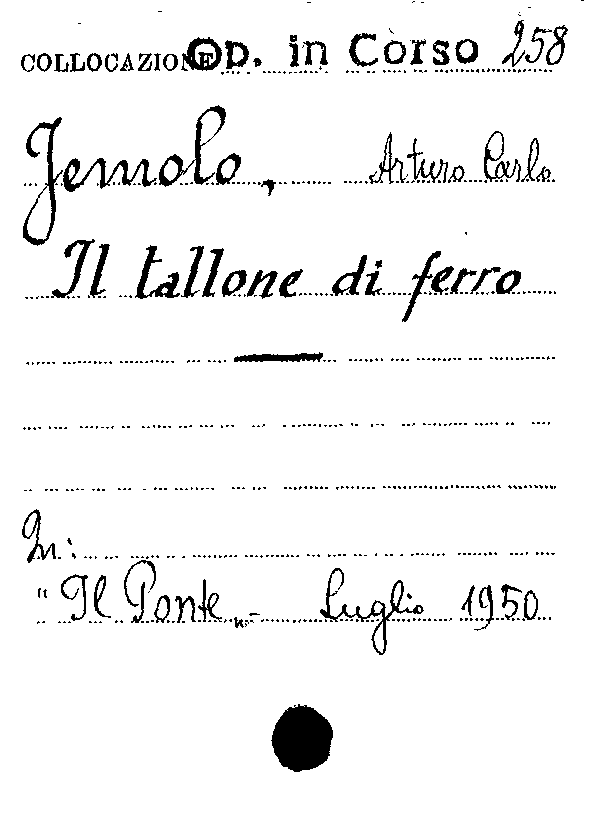 COLLOCAZIONE Op. in Corso 258
Jemolo, Arturo Carlo
Il tallone di ferro
In:
"Il Ponte„- Luglio 1950